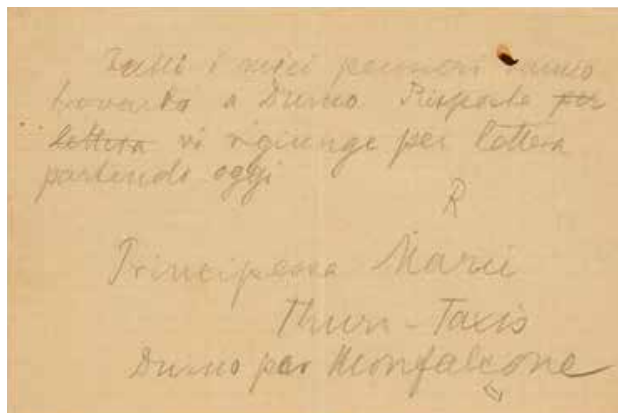 Tutti i miei pensieri vanno
trovarla a Duino Risposta per
lettera vi rigiunge per lettera
partendo oggi
R
Principessa Marie
Thurn-Taxis
Duino per Monfalcone